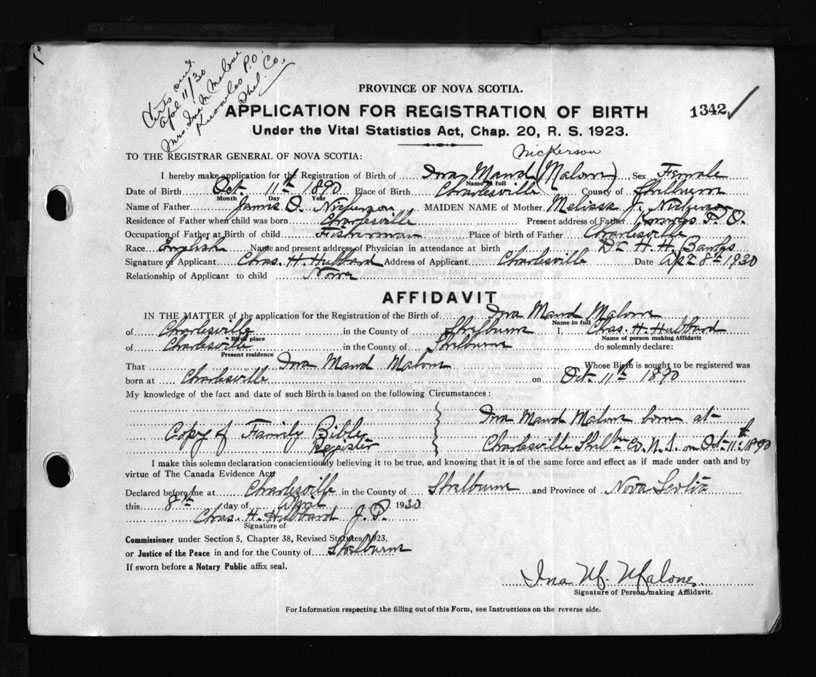 Certs out
Apl 11/30
Mrs Ina M. Malone
Knowles P.O.
Shel. Co,
PROVINCE OF NOVA SCOTIA.
APPLICATION FOR REGISTRATION OF BIRTH
1342
Under the Vital Statistics Act, Chap. 20, R. S. 1923.
Nickerson
TO THE REGISTRAR GENERAL OF NOVA SCOTIA:
I hereby make application for the Registration of Birth of Ina Maud (Malone) Sex Female
Name in full
Date of Birth Oct. 11th 1890 Place of Birth Charlesville County of Shelburne
Month Day Year
Name of Father O. Nickerson MAIDEN NAME of Mother Melissa J. Nickerson
Residence of Father when child was born Charlesville Present address of Father P. O.
Occupation of Father at Birth of child Fisherman Place of birth of Father Charlesville
Race English Name and present address of Physician in attendance at birth Dr H. H. Banks
Signature of Applicant Chas. H. Hubbard Address of Applicant Charlesville Date Apl 8th 1930
Relationship of Applicant to child None
AFFIDAVIT
IN THE MATTER of the application for the Registration of the Birth of Ina Maud Malone
Name in full
of Charlesville in the County of Shelburne I Chas. H. Hubbard
Birth place Name of person making Affidavit
of Charlesville in the County of Shelburne do solemnly declare:
Present residence
That Ina Maud Malone Whose Birth is sought to be registered was
born at Charlesville on Oct 11th 1890
My knowledge of the fact and date of such Birth is based on the following Circumstances:
Ina Maud Malone born at
Copy of Family Bible
Register
Charlesville Co. N. S. on Oct. 11th 1890
I make this solemn declaration conscientiously believing it to be true, and knowing that it is of the same force and effect as if made under oath and by
virtue of The Canada Evidence Act.
Declared before me at Charlesville in the County of Shelburne and Province of Nova Scotia
this 8th day of April 1930
Chas. H. Hubbard J. P.
Signature of
Commissioner under Section 5, Chapter 38, Revised Statutes 1923,
or Justice of the Peace in and for the County of Shelburne
If sworn before a Notary Public affix seal.
Ina M. Malone
Signature of Person making Affidavit.
For Information respecting the filling out of this Form, see Instructions on the reverse side.